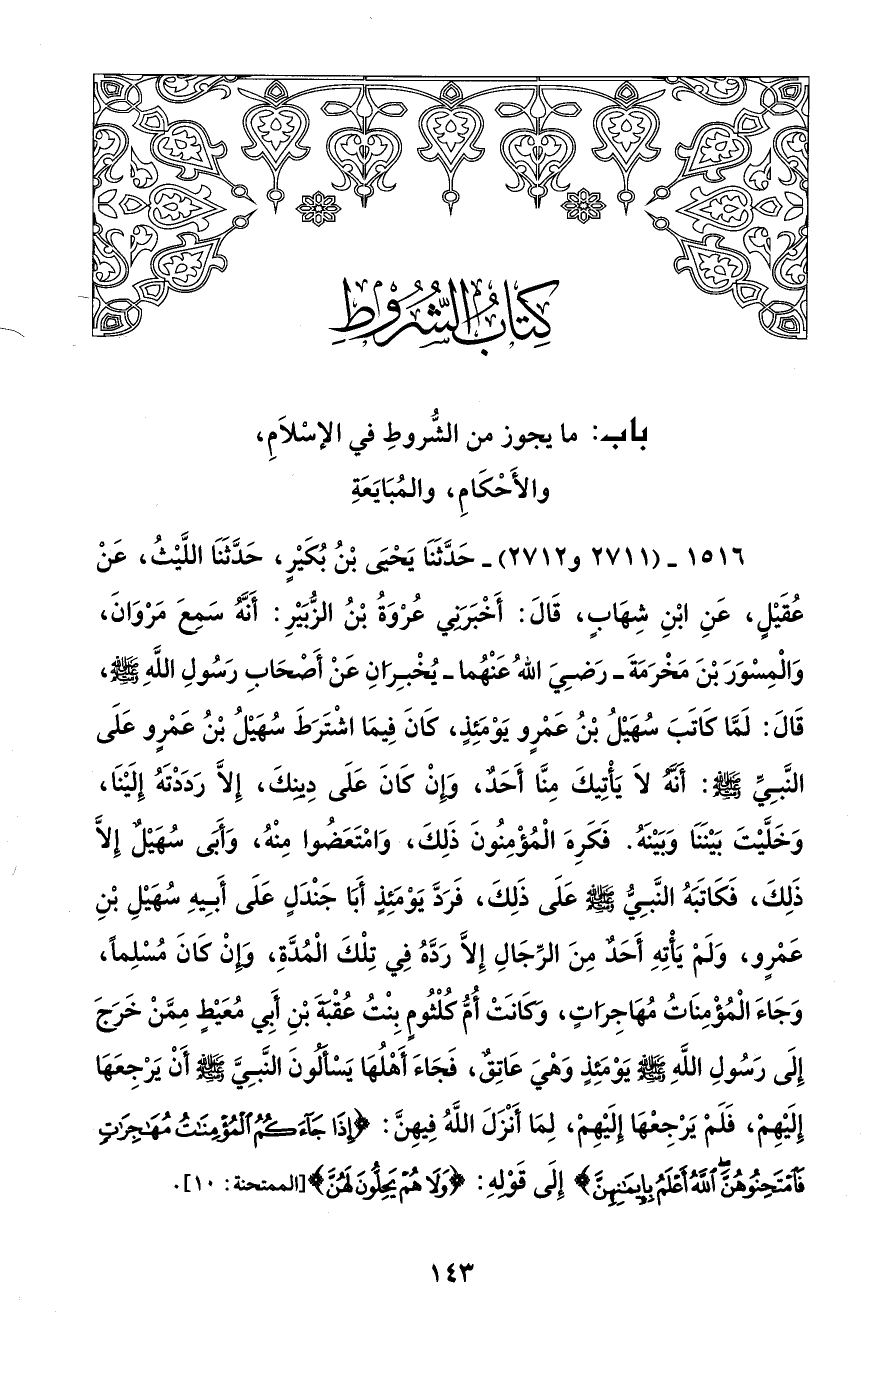 كِتَابُ الشُّرُوطِ
باب: ما يجوز من الشُّروطِ في الإسْلاَمِ،
والأَحْكَامِ، والمُبَايَعَةِ
١٥١٦ ـ (٢٧١١ و٢٧١٢) ـ حَدَّثَنَا يَحْيَى بْنُ بُكَيْرٍ، حَدَّثَنَا اللَّيْثُ، عَنْ
عُقَيْلٍ، عَنِ ابْنِ شِهَابٍ، قَالَ: أَخْبَرَنِي عُرْوَةُ بْنُ الزُّبَيْرِ: أَنَّهُ سَمِعَ مَرْوَانَ،
وَالْمِسْوَرَ بْنَ مَخْرَمَةَ ـ رَضِيَ اللهُ عَنْهُما ـ يُخْبِرَانِ عَنْ أَصْحَابِ رَسُولِ اللَّهِ ﷺ،
قَالَ: لَمَّا كَاتَبَ سُهَيْلُ بْنُ عَمْرٍو يَوْمَئِذٍ، كَانَ فِيمَا اشْتَرَطَ سُهَيْلُ بْنُ عَمْرٍو عَلَى
النَّبِيِّ ﷺ: أَنَّهُ لاَ يَأْتِيكَ مِنَّا أَحَدٌ، وَإِنْ كَانَ عَلَى دِينِكَ، إِلاَّ رَدَدْتَهُ إِلَيْنَا،
وَخَلَّيْتَ بَيْنَنَا وَبَيْنَهُ. فَكَرِهَ الْمُؤْمِنُونَ ذَلِكَ، وَامْتَعَضُوا مِنْهُ، وَأَبَى سُهَيْلٌ إِلاَّ
ذَلِكَ، فَكَاتَبَهُ النَّبِيُّ ﷺ عَلَى ذَلِكَ، فَرَدَّ يَوْمَئِذٍ أَبَا جَنْدَلٍ عَلَى أَبِيهِ سُهَيْلِ بْنِ
عَمْرٍو، وَلَمْ يَأْتِهِ أَحَدٌ مِنَ الرِّجَالِ إِلاَّ رَدَّهُ فِي تِلْكَ الْمُدَّةِ، وَإِنْ كَانَ مُسْلِماً،
وَجَاءَ الْمُؤْمِنَاتُ مُهَاجِرَاتٍ، وَكَانَتْ أُمُّ كُلْثُومٍ بِنْتُ عُقْبَةَ بْنِ أَبِي مُعَيْطٍ مِمَّنْ خَرَجَ
إِلَى رَسُولِ اللَّهِ ﷺ يَوْمَئِذٍ وَهْيَ عَاتِقٌ، فَجَاءَ أَهْلُهَا يَسْأَلُونَ النَّبِيَّ ﷺ أَنْ يَرْجِعَهَا
إِلَيْهِمْ، فَلَمْ يَرْجِعْهَا إِلَيْهِمْ، لِمَا أَنْزَلَ اللَّهُ فِيهِنَّ: ﴿إِذَا جَآءَكُمُ ٱلْمُؤْمِنَٰتُ مُهَٰجِرَٰتٍ
فَٱمْتَحِنُوهُنَّ ۖ ٱللَّهُ أَعْلَمُ بِإِيمَٰنِهِنَّ﴾ إِلَى قَوْلِهِ: ﴿وَلَا هُمْ يَحِلُّونَ لَهُنَّ﴾ [الممتحنة: ١٠].
١٤٣